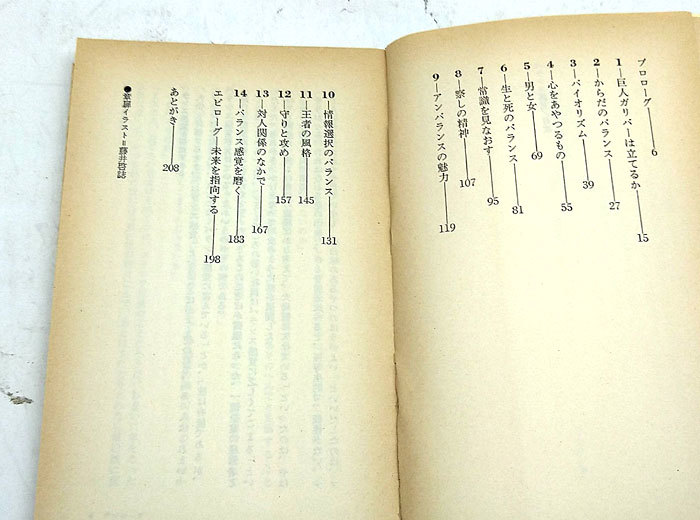 プロローグ――6
1 巨人ガリバーは立てるか――15
2 からだのバランス――27
3 バイオリズム――39
4 心をあやつるもの――55
5 男と女――69
6 生と死のバランス――81
7 常識を見なおす――95
8 察しの精神――107
9 アンバランスの魅力――119
10 情報選択のバランス――131
11 王者の風格――145
12 守りと攻め――157
13 対人関係のなかで――167
14 バランス感覚を磨く――183
エピローグ――未来を指向する――198
あとがき――208
●章扉イラスト=藤井